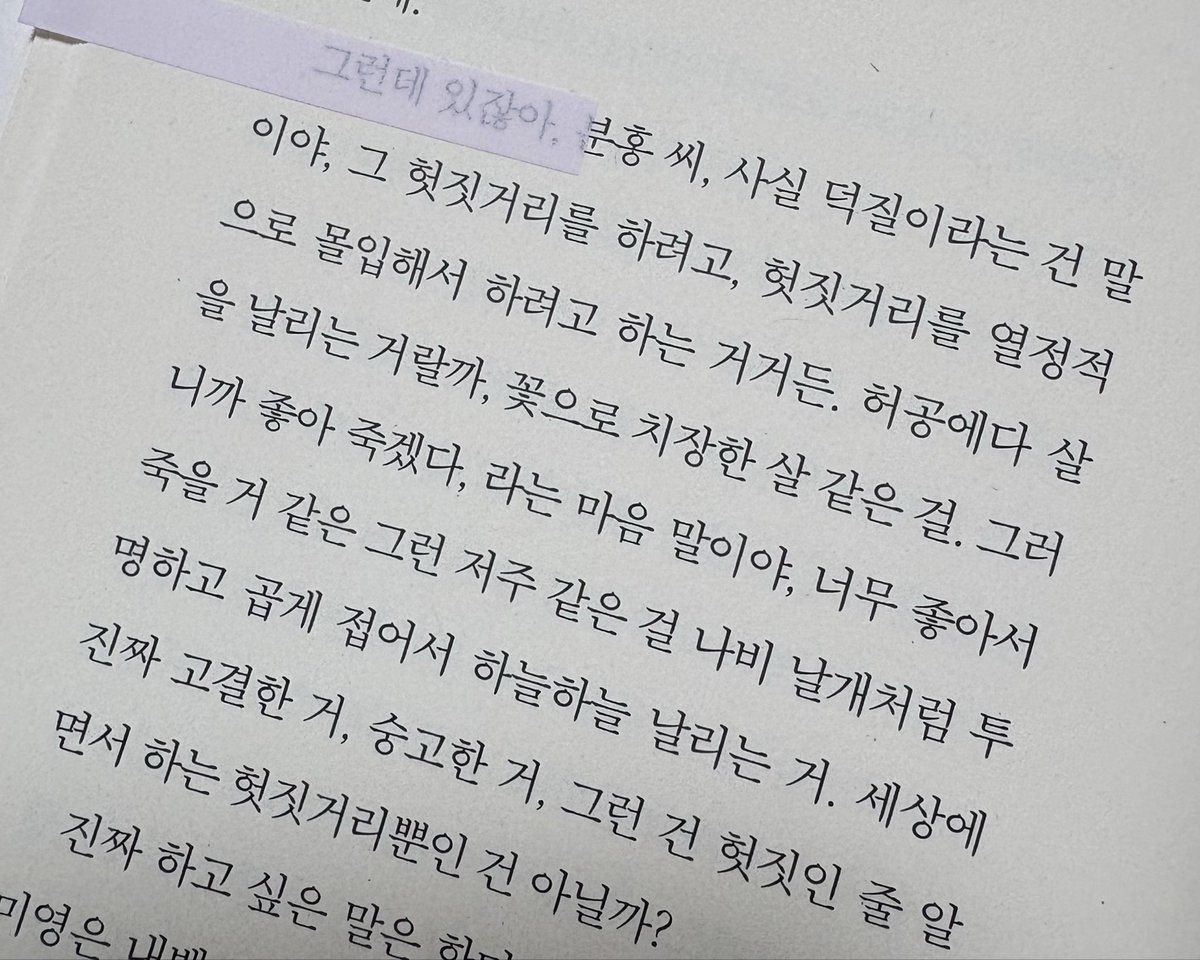 그런데 있잖아, 분홍 씨, 사실 덕질이라는 건 말
이야, 그 헛짓거리를 하려고, 헛짓거리를 열정적
으로 몰입해서 하려고 하는 거거든. 허공에다 살
을 날리는 거랄까, 꽃으로 치장한 살 같은 걸. 그러
니까 좋아 죽겠다, 라는 마음 말이야, 너무 좋아서
죽을 거 같은 그런 저주 같은 걸 나비 날개처럼 투
명하고 곱게 접어서 하늘하늘 날리는 거. 세상에
진짜 고결한 거, 숭고한 거, 그런 건 헛짓인 줄 알
면서 하는 헛짓거리뿐인 건 아닐까?
진짜 하고 싶은 말은
미영은